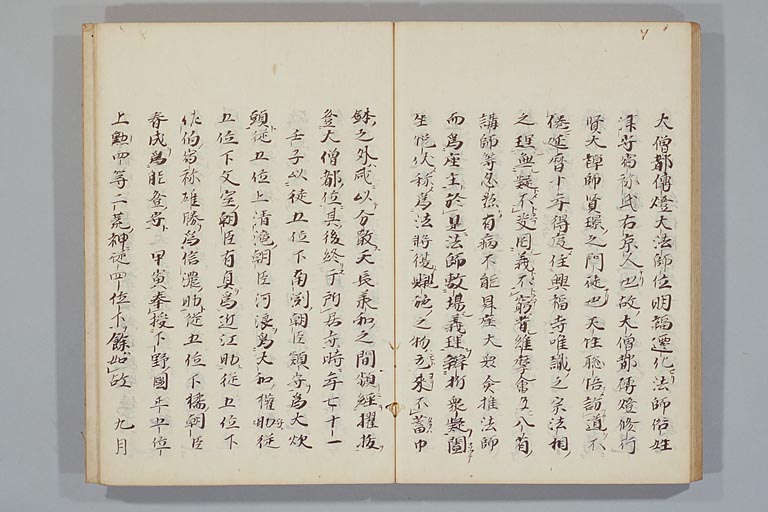 大僧都傳燈大法師位明福遷化法師俗姓
津守宿祢氏右京人也故大僧都傳燈修行
賢大禪師賢璟之門徒也天性聡悟訪道不
倦延暦十年得度住興福寺唯識之宗法相
之理無疑不決因義不窮嘗維摩會立八筒
講師等忽有病不能昇座大衆僉推法師
而爲座主於是法師敷揚義理辨析衆疑聞
生悦伏稱爲法將後嚫施之物元來不蓄巾
鉢之外咸以分散天長承和之間頻經擢抜
登大僧都位其後終于所居寺時年七十一
壬子以従五位下南渕朝臣頴守爲大炊
頭従五位上清瀧朝臣河根爲大和權助従
五位下文室朝臣有真爲近江助従五位下
佐伯宿祢雄勝爲信濃助従五位下橘朝臣
春成爲能登守 甲寅奉授下野國正五位
上勲四等二荒神従四位下餘如故 九月